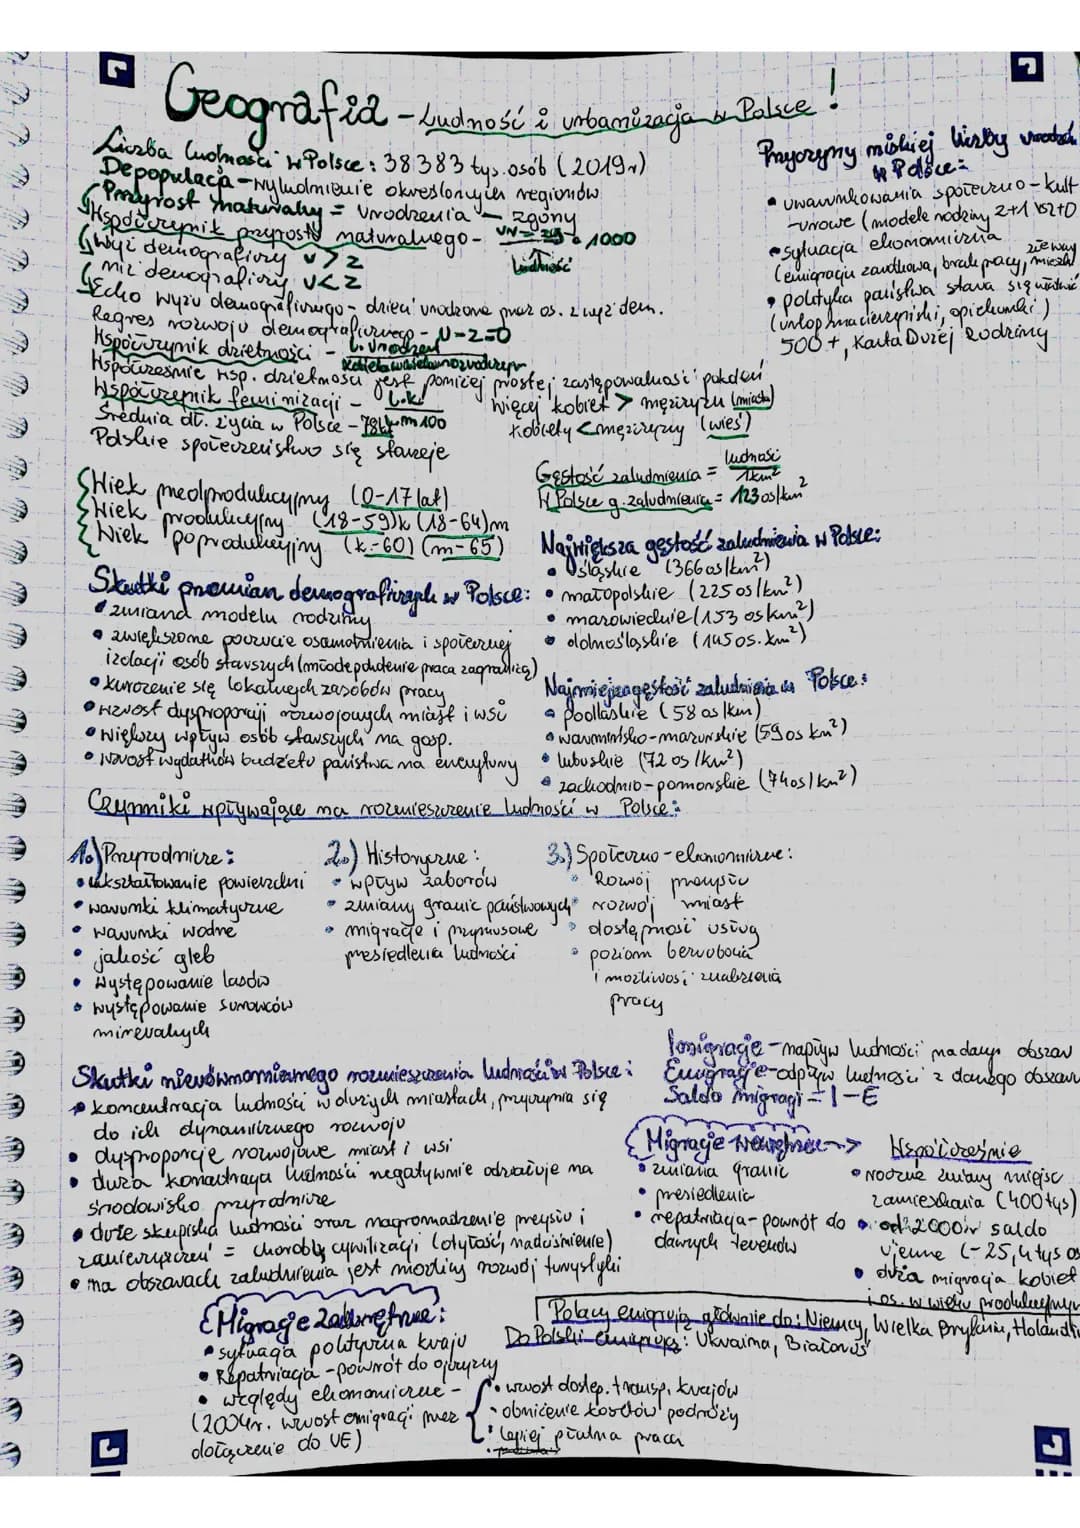 Geografia - Ludność i urbanizacja w Polsce !
Liczba ludności w Polsce : 38 383 tys. osób (2019r)
Depopulacja - wyludnienie określonych regionów
Przyrost naturalny = Urodzenia - zgony
Współczynnik przyrostu naturalnego - UN - zg · 1000
ludność
wyż demograficzny U > Z
niż demograficzny U < Z
Echo wyżu demograficznego - dzieci urodzone przez os. z wyż dem.
Regres rozwoju demograficznego - U - Z = 0
Współczynnik dzietności - l. urodzeń
Współcześnie wsp. dzietności jest poniżej prostej zastępowalności pokoleń
Współczynnik feminizacji - L.k.
L.m 100
Więcej kobiet > mężczyzn (miasta)
Kobiety < mężczyzny (wieś)
Średnia dł. życia w Polsce - 78
Polskie społeczeństwo się starzeje
Wiek przedprodukcyjny (0-17 lat)
Wiek produkcyjny (18-59)k (18-64)m
Wiek poprodukcyjny (k-60) (m-65)
Skutki przemian demograficznych w Polsce:
• zmiana modelu rodziny
• zwiększone poczucie osamotnienia i społecznej
izolacji osób starszych (młode pokolenie praca zagranicą)
• kurczenie się lokalnych zasobów pracy
• wzrost dysproporcji rozwojowych miast i wsi
• większy wpływ osób starszych na gosp.
• wzrost wydatków budżetu państwa na emerytury
Przyczyny niskiej liczby urodzeń
w Polsce:
• uwarunkowania społeczno - kult
-urowe (modele rodziny 2+1 2+0
• sytuacja ekonomiczna
(emigracja zarobkowa, brak pracy,
• polityka państwa stara się
(urlop macierzyński, opiekuński)
500+, Karta Dużej Rodziny
Gęstość zaludnienia = ludność
1km²
W Polsce g. zaludnienia = 123 os/km²
Największa gęstość zaludnienia w Polsce:
• śląskie (366 os/km²)
• małopolskie (225 os/km²)
• mazowieckie (153 os km²)
• dolnośląskie (145 os. km²)
Najmniejsza gęstość zaludnienia w Polsce:
• podlaskie (58 os/km)
• warmińsko-mazurskie (59 os km²)
• lubuskie (72 os/km²)
• zachodnio-pomorskie (74 os/km²)
Czynniki wpływające na rozmieszczenie ludności w Polsce:
1.) Przyrodnicze :
• ukształtowanie powierzchni
• warunki klimatyczne
• warunki wodne
• jakość gleb
• występowanie lasów
• występowanie surowców
mineralnych
2.) Historyczne :
• wpływ zaborów
• zmiany granic państwowych
• migracje i przymusowe
przesiedlenia ludności
3.) Społeczno - ekonomiczne :
• Rozwój przemysłu
• rozwój miast
• dostępność usług
• poziom bezrobocia
i możliwość znalezienia
pracy
Skutki nierównomiernego rozmieszczenia ludności w Polsce :
• koncentracja ludności w dużych miastach, przyczynia się
do ich dynamicznego rozwoju
• dysproporcje rozwojowe miast i wsi
• duża koncentracja ludności negatywnie oddziałuje na
środowisko przyrodnicze
• duże skupiska ludności oraz nagromadzenie przemysłu i
zanieczyszczeń = choroby cywilizacji (otyłość, nadciśnienie)
• na obszarach zaludnienia jest możliwy rozwój turystyki
Imigracje - napływ ludności na dany obszar
Emigracje - odpływ ludności z danego obszaru
Saldo migracji = I - E
Migracje Wewnętrzne →
• zmiana granic
• przesiedlenia
• repatriacja - powrót do
dawnych terenów
Współcześnie
• roczne zmiany miejsc
zamieszkania (400 tys)
• od 2000r saldo
ujemne (-25,4 tys os
• duża migracja kobiet
i os. w wieku produkcyjnym
Migracje Zewnętrzne :
• sytuacja polityczna kraju
• Repatriacja - powrót do ojczyzny
• względy ekonomiczne -
(2004r. wzrost emigracji przez
dołączenie do UE)
• wzrost dostęp. transp. krajów
• obniżenie kosztów podróży
• lepiej płatna praca
Polacy emigrują głównie do : Niemcy, Wielka Brytania, Holandia
Do Polski emigrują : Ukraina, Białoruś